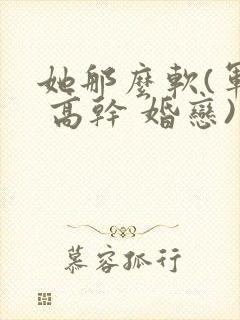 她那麼軟(軍
高幹 婚戀)
慕容孤行